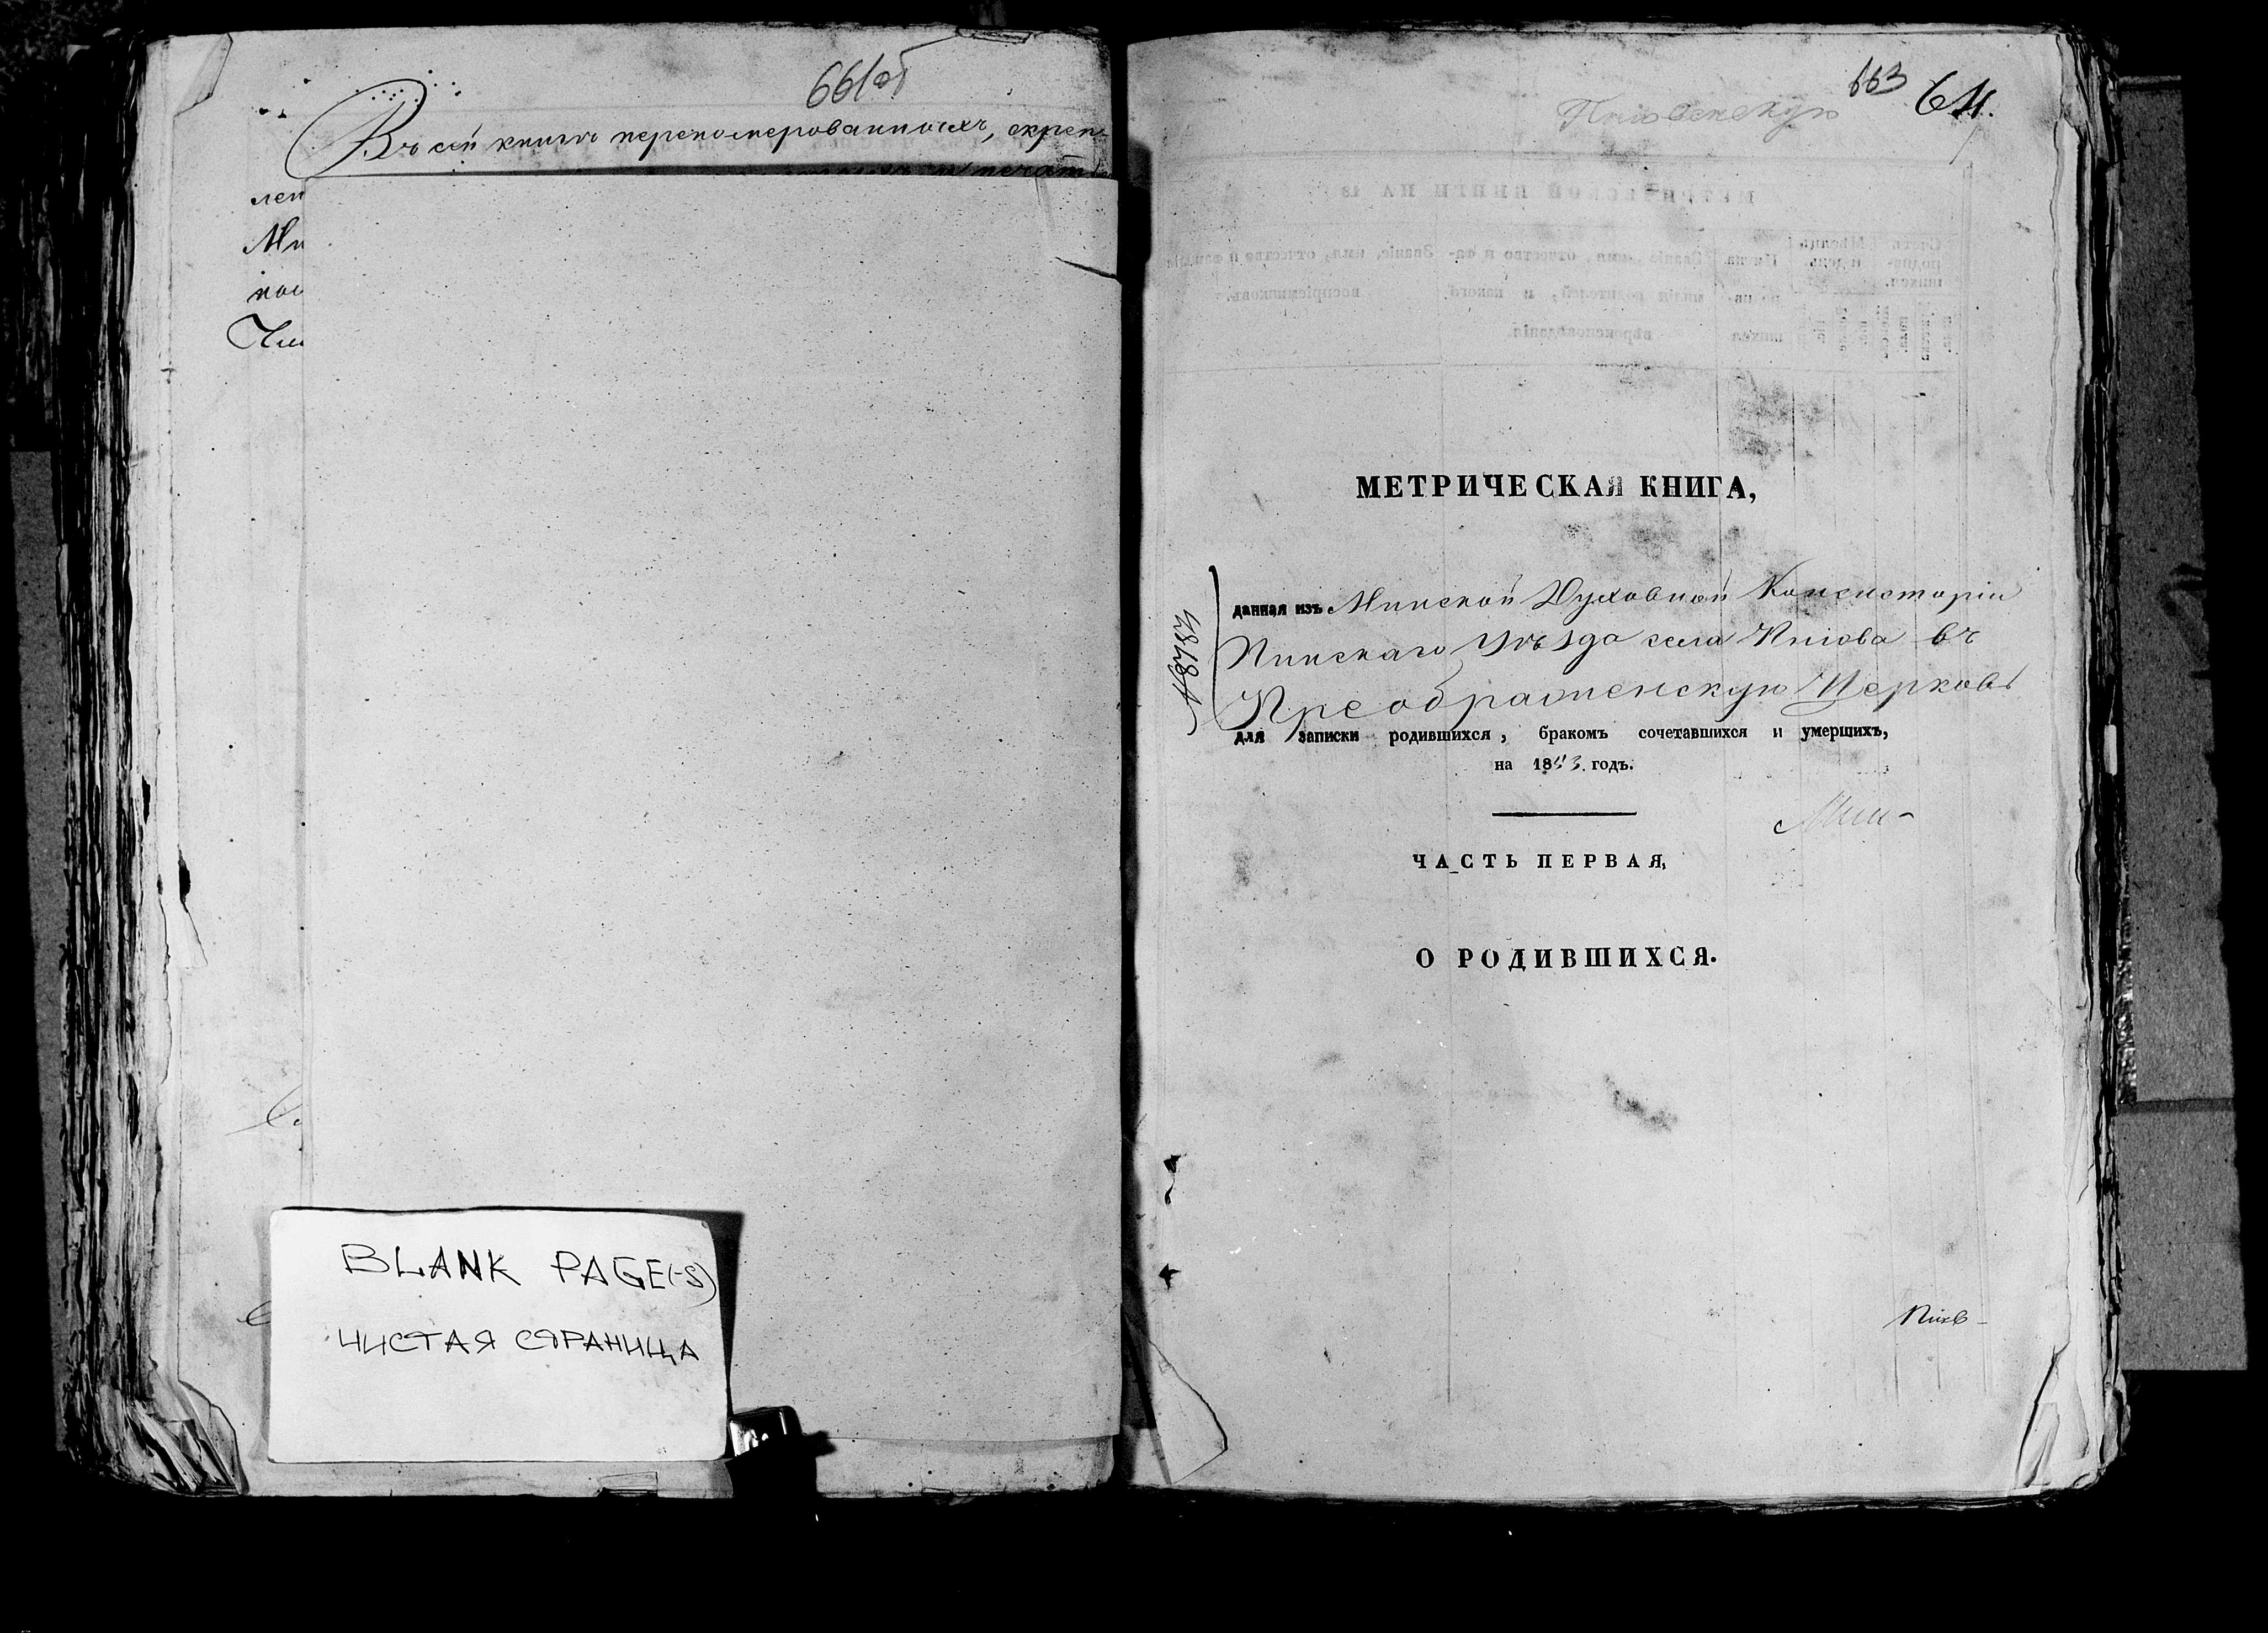 661об
Въ сей книгѣ перенумерованныхъ, скреп-
печат
лен
Ми
пос
Чи
BLANK PAGE(-S)
ЧИСТАЯ СТРАНИЦА
663 64.
Пніовскую
МЕТРИЧЕСКАЯ КНИГА,
данная изъ Минской Духовной Консисторіи
Пинскаго Уѣзда села Пніова въ
Преображенскую Церковь
для записки родившихся, бракомъ сочетавшихся и умершихъ,
на 1853. годъ.
Мин-
ЧАСТЬ ПЕРВАЯ,
О РОДИВШИХСЯ.